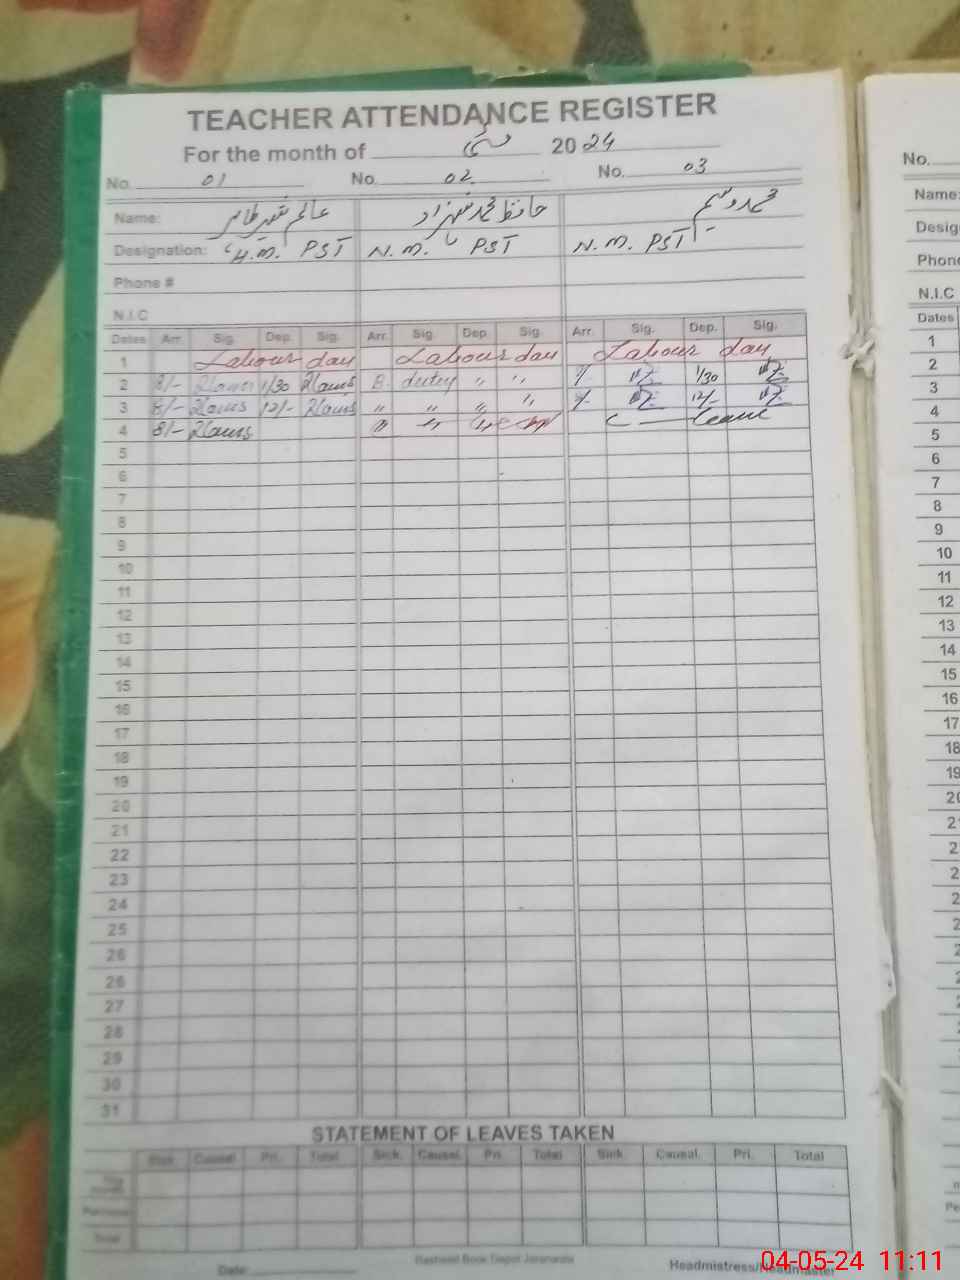 TEACHER ATTENDANCE REGISTER
For the month of مئی 2024
No. 01 No. 02 No. 03
Name: عالم شیر طاہر حافظ محمد شہزاد محمد وسیم
Designation: H.M. PST N.M. PST N.M. PST
Phone #
N.I.C
Dates Arr. Sig. Dep. Sig. Arr. Sig. Dep. Sig. Arr. Sig. Dep. Sig.
1 Labour day Labour day Labour day
2 8/- 1/30 B. duty " " 1/30
3 8/- 12/- " " " " 12/-
4 8/- " " Leave
5
6
7
8
9
10
11
12
13
14
15
16
17
18
19
20
21
22
23
24
25
26
26
27
28
29
30
31
STATEMENT OF LEAVES TAKEN
Sick Causal. Pri. Total Sick. Causal. Pri. Total Sick. Causal. Pri. Total
This month
Total
Date:
Headmistress/Headmaster
04-05-24 11:11
No.
Name:
Desig
Phone
N.I.C
Dates
1
2
3
4
5
6
7
8
9
10
11
12
13
14
15
16
17
18
19